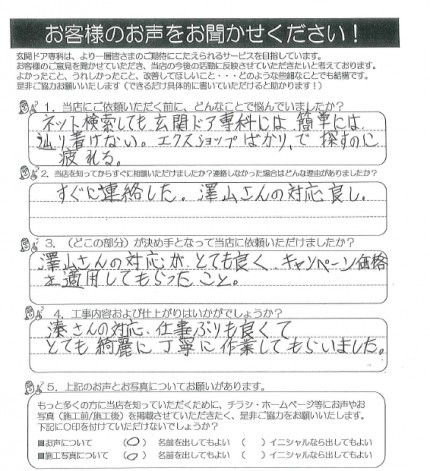 お客様のお声をお聞かせください！
玄関ドア専科は、より一層皆さまのご期待にこたえられるサービスを目指しています。
お客様のご意見を聞かせていただき、当店の今後の活動に反映させていただきたいと考えております。
よかったこと、うれしかったこと、改善してほしいこと・・・どのような些細なことでも結構です。
是非ご協力お願いいたします（できるだけ具体的に書いていただけると助かります！）
1．当店にご依頼いただく前に、どんなことで悩んでいましたか？
ネット検索しても玄関ドア専科には簡単には
辿り着けない。エクスショップばかりで探すのに
疲れる。
2．当店を知ってからすぐに相談いただけましたか？連絡しなかった場合はどんな理由がありましたか？
すぐに連絡した。澤山さんの対応良し。
3．（どこの部分）が決め手となって当店に依頼いただけましたか？
澤山さんの対応が、とても良く、キャンペーン価格
を適用してもらったこと。
4．工事内容および仕上がりはいかがでしょうか？
湊さんの対応、仕事ぶりも良くて
とても綺麗に丁寧に作業してもらいました。
5．上記のお声とお写真についてお願いがあります。
もっと多くの方に当店を知っていただくために、チラシ・ホームページ等にお声やお
写真（施工前/施工後）を掲載させていただきたく、是非ご協力をお願いいたします。
下記に〇印を付けていただけないでしょうか？
■お声について （〇） 名前を出してもよい （ ） イニシャルなら出してもよい
■施工写真について （〇） 名前を出してもよい （ ） イニシャルなら出してもよい